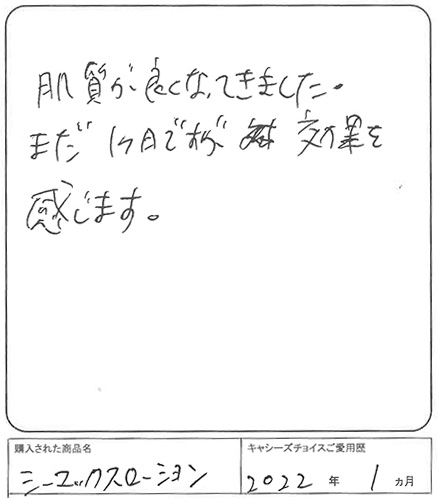 肌質が良くなってきました。
まだ1ヶ月ですが 効果を
感じます。
購入された商品名
シーエックスローション
キャシーズチョイスご愛用歴
2022 年 1 カ月